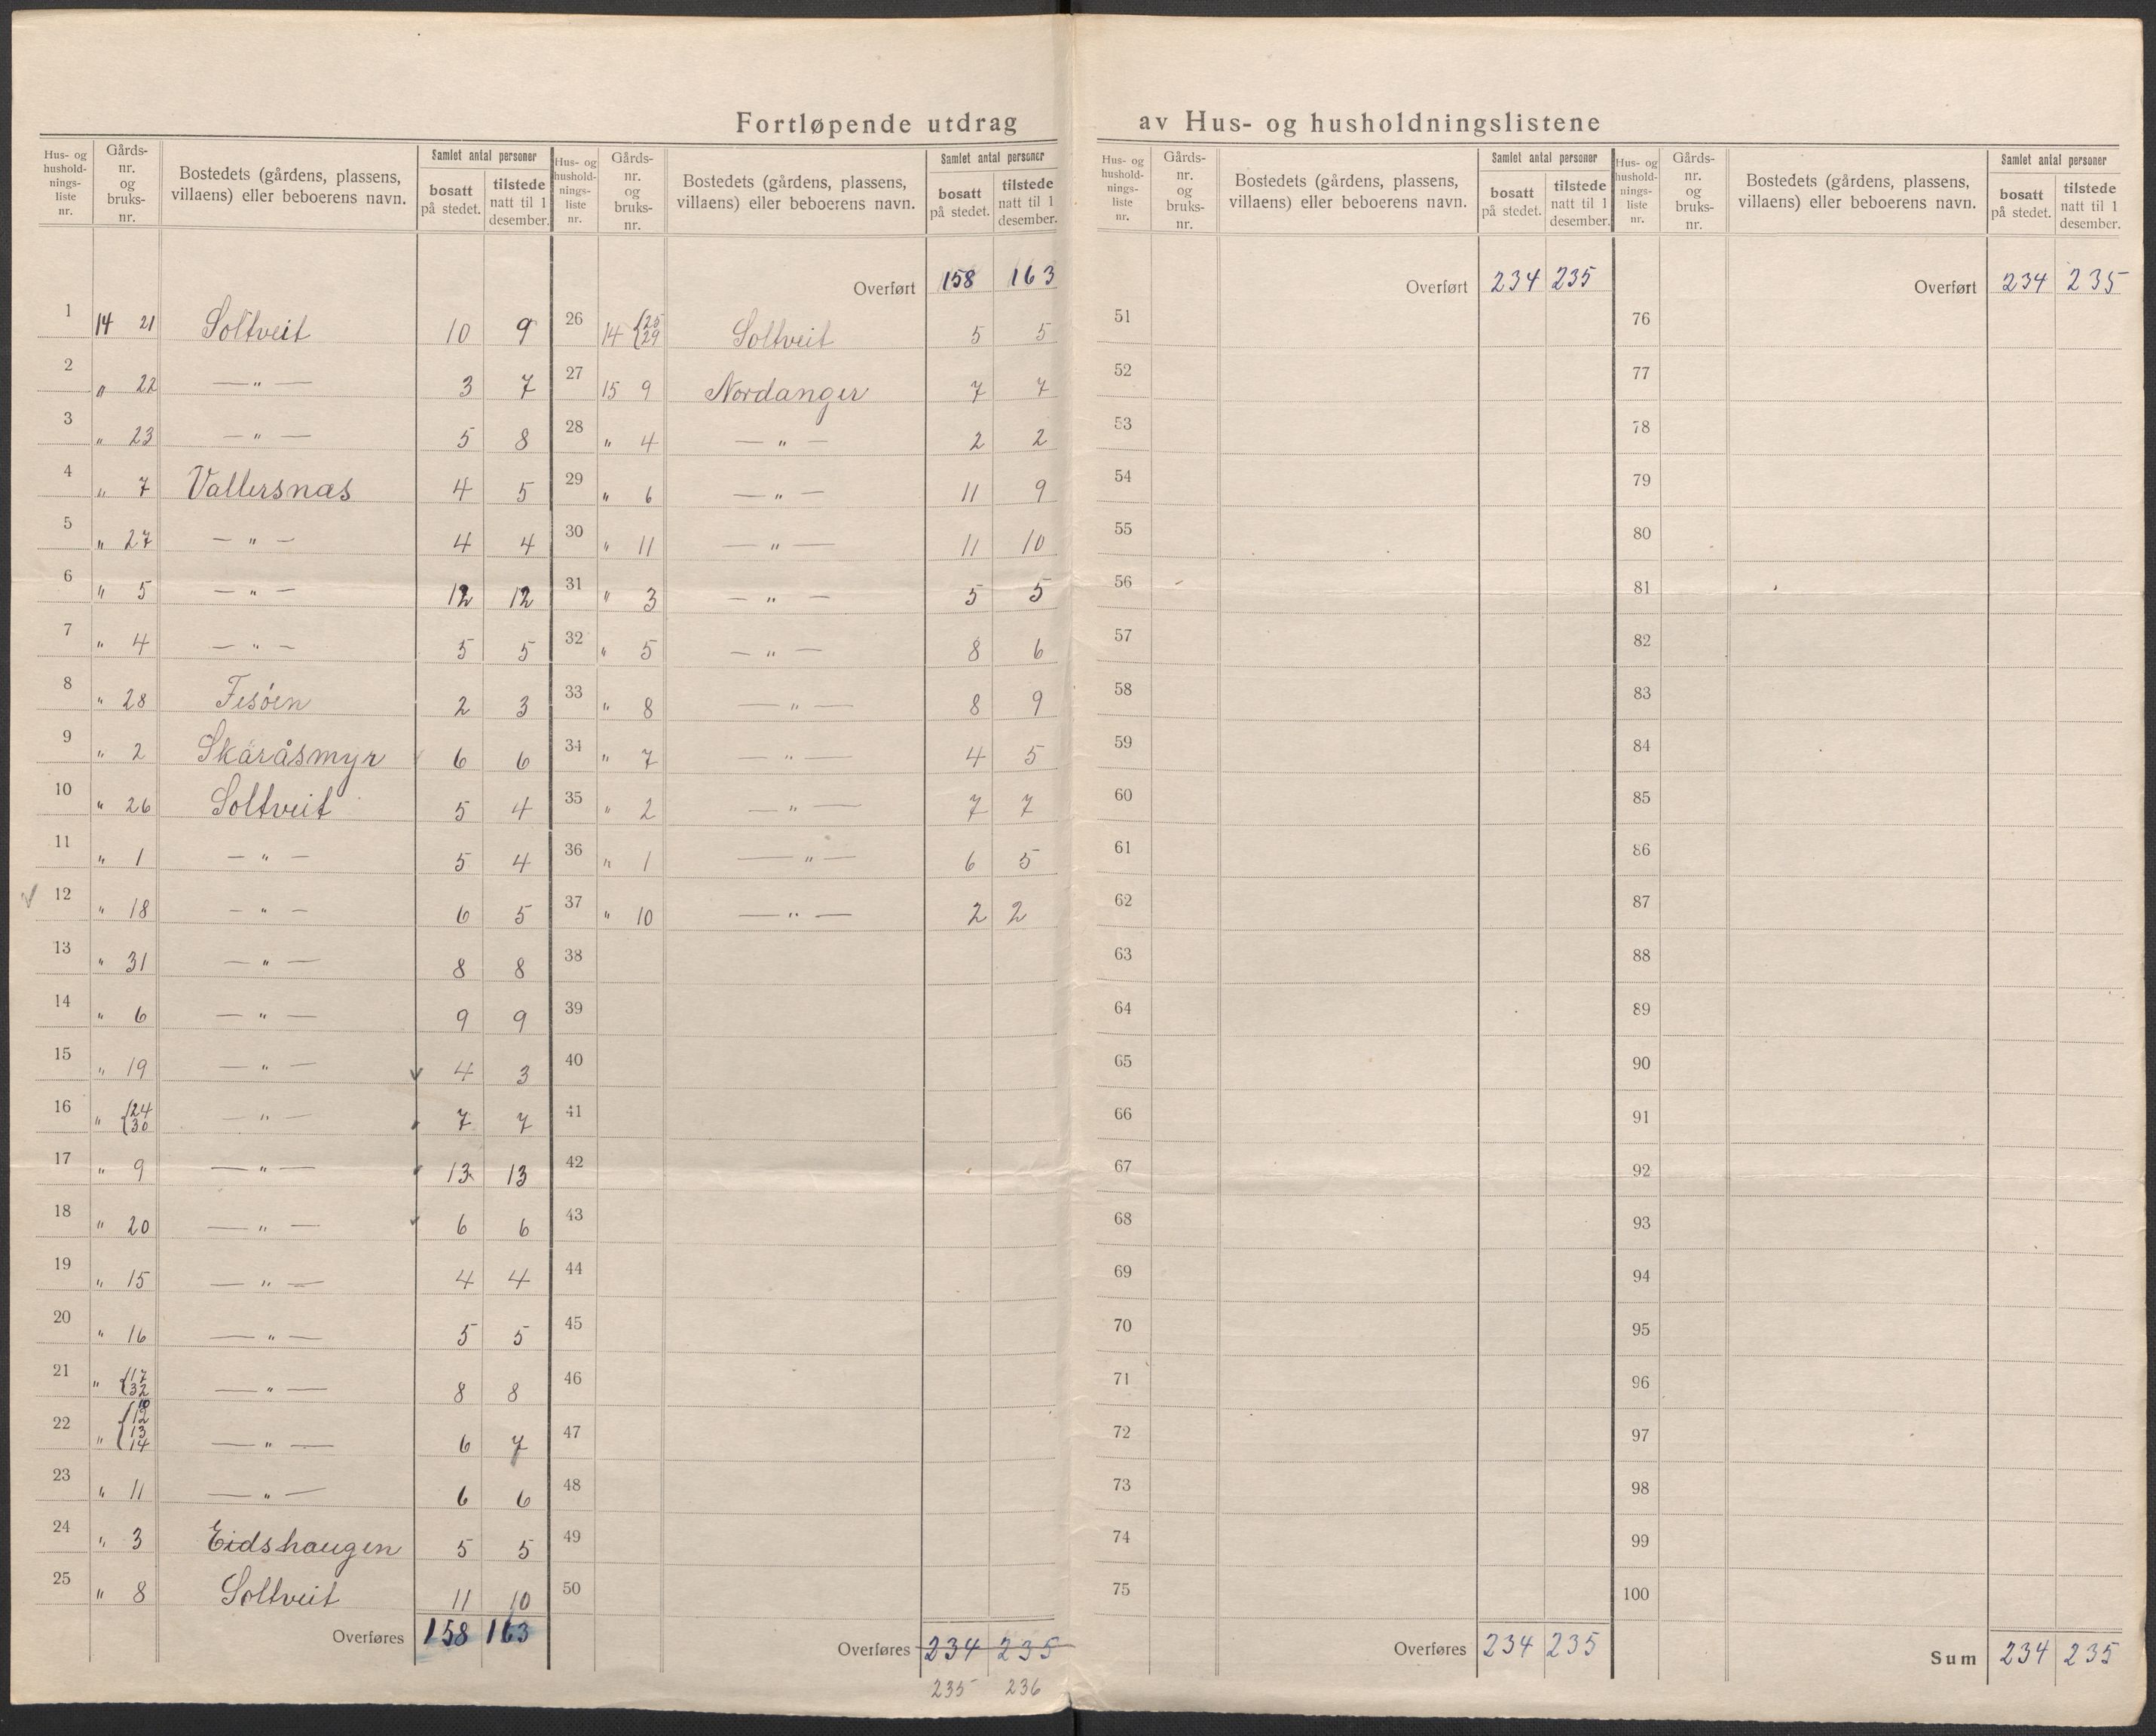 Fortløpende utdrag av Hus- og husholdningslistene
Hus- og hushold-nings-liste nr. Gårds-nr. og bruks-nr. Bostedets (gårdens, plassens, villaens) eller beboerens navn. Samlet antal personer bosatt på stedet. tilstede natt til 1 desember.
1 14 21 Soltveit 10 9
2 " 22 — " — 3 7
3 " 23 — " — 5 8
4 " 7 Vallersnæs 4 5
5 " 27 — " — 4 4
6 " 5 — " — 12 12
7 " 4 — " — 5 5
8 " 28 Fesöen 2 3
9 " 2 Skåråsmyr 6 6
10 " 26 Soltveit 5 4
11 " 1 — " — 5 4
12 " 18 — " — 6 5
13 " 31 — " — 8 8
14 " 6 — " — 9 9
15 " 19 — " — 4 3
16 " {24 30 — " — 7 7
17 " 9 — " — 13 13
18 " 20 — " — 6 6
19 " 15 — " — 4 4
20 " 16 — " — 5 5
21 " {17 32 — " — 8 8
22 " {10 12 13 14 — " — 6 7
23 " 11 — " — 6 6
24 " 3 Eidshaugen 5 5
25 " 8 Soltveit 11 10
Overføres 158 163
Hus- og hushold-nings-liste nr. Gårds-nr. og bruks-nr. Bostedets (gårdens, plassens, villaens) eller beboerens navn. Samlet antal personer bosatt på stedet. tilstede natt til 1 desember.
Overført 158 163
26 14 {25 29 Soltveit 5 5
27 15 9 Nordanger 7 7
28 " 4 — " — 2 2
29 " 6 — " — 11 9
30 " 11 — " — 11 10
31 " 3 — " — 5 5
32 " 5 — " — 8 6
33 " 8 — " — 8 9
34 " 7 — " — 4 5
35 " 2 — " — 7 7
36 " 1 — " — 6 5
37 " 10 — " — 2 2
38
39
40
41
42
43
44
45
46
47
48
49
50
Overføres 234 235
235 236
Hus- og hushold-nings-liste nr. Gårds-nr. og bruks-nr. Bostedets (gårdens, plassens, villaens) eller beboerens navn. Samlet antal personer bosatt på stedet. tilstede natt til 1 desember.
Overført 234 235
51
52
53
54
55
56
57
58
59
60
61
62
63
64
65
66
67
68
69
70
71
72
73
74
75
Overføres 234 235
Hus- og hushold-nings-liste nr. Gårds-nr. og bruks-nr. Bostedets (gårdens, plassens, villaens) eller beboerens navn. Samlet antal personer bosatt på stedet. tilstede natt til 1 desember.
Overført 234 235
76
77
78
79
80
81
82
83
84
85
86
87
88
89
90
91
92
93
94
95
96
97
98
99
100
Sum 234 235